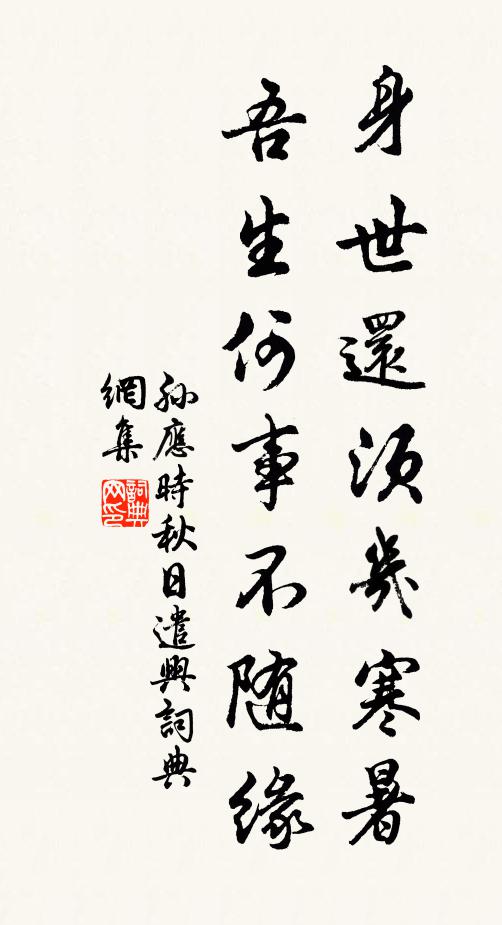 身世還須幾寒暑
吾生何事不隨緣
孫應時秋日遣興詞典
網集
詞典
网印